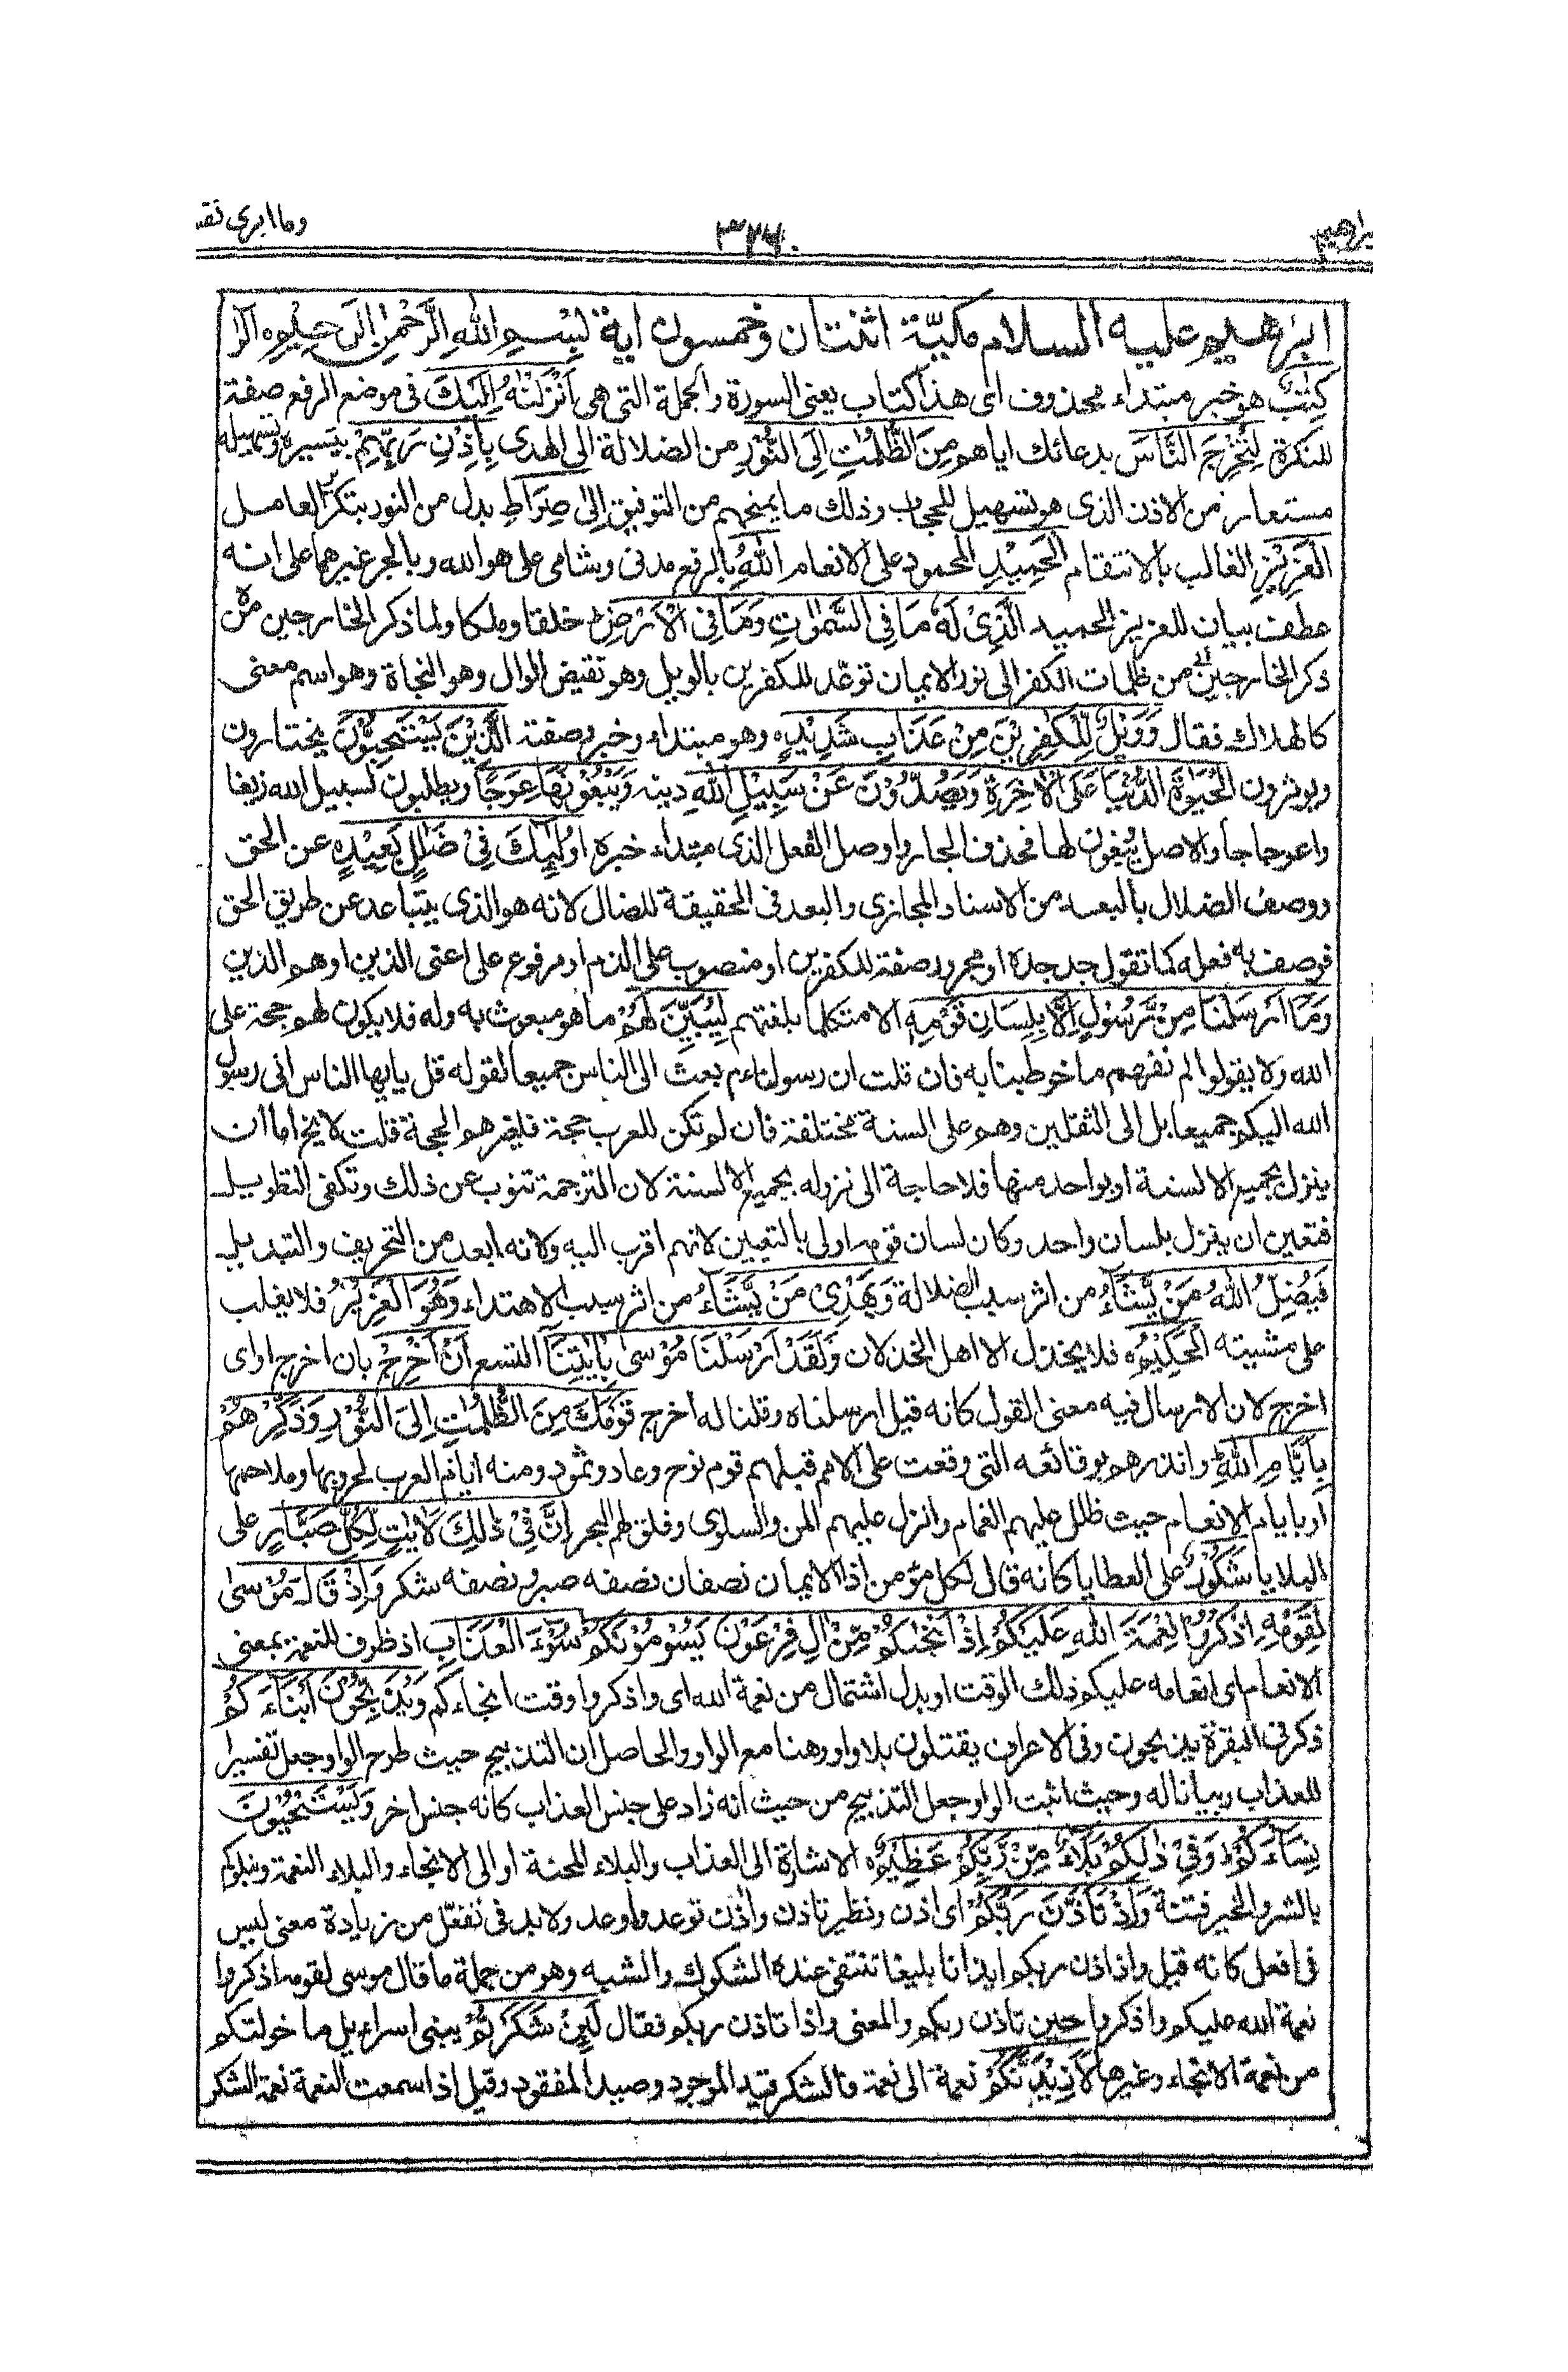 وما ابرئ نفسـ
٣٢٤
ابراهيم
ابرٰهيم عليه السلام مكيّة اثنتان وخمسون اية بِسْمِ اللهِ الرَّحْمٰنِ الرَّحِيْمِ ه الٓرٰ
كِتٰبٌ هو خبر مبتداء محذوف اى هذا كتاب يعنى السورة والجملة التى هى اَنْزَلْنٰهُ اِلَيْكَ فى موضع الرفع صفة
للنكرة لِتُخْرِجَ النَّاسَ بدعائك اياهم مِنَ الظُّلُمٰتِ اِلَى النُّوْرِ من الضلالة الى الهدى بِاِذْنِ رَبِّهِمْ بتيسيره وتسهيله
مستعار من الاذن الذى هو تسهيل للحجاب وذلك ما يمنحهم من التوفيق اِلٰى صِرَاطِ بدل من النور بتكرير العامل
الْعَزِيْزِ الغالب بالانتقام الْحَمِيْدِ المحمود على الانعام اَللهُ بالرفع مدنى وشامى على هو الله وبالجر غيرهما على انه
عطف بيان للعزيز الحميد الَّذِىْ لَهٗ مَا فِى السَّمٰوٰتِ وَمَا فِى الْاَرْضِ خلقا وملكا ولما ذكر الخارجين من
ذكر الخارجين من ظلمات الكفر الى نور الايمان توعّد للكفرين بالويل وهو نقيض الوال وهو النجاة وهو اسم معنى
كالهلاك فقال وَوَيْلٌ لِّلْكٰفِرِيْنَ مِنْ عَذَابٍ شَدِيْدٍ ه وهو مبتداء وخبر وصفة الَّذِيْنَ يَسْتَحِبُّوْنَ يختارون
ويوثرون الْحَيٰوةَ الدُّنْيَا عَلَى الْاٰخِرَةِ وَيَصُدُّوْنَ عَنْ سَبِيْلِ اللهِ دينه وَيَبْغُوْنَهَا عِوَجًا ويطلبون لسبيل الله زيغا
واعوجاجا والاصل يبغون لها فحذف الجار واوصل الفعل الذى مبتداء خبره اُولٰٓئِكَ فِىْ ضَلٰلٍ بَعِيْدٍ ه عن الحق
ووصف الضلال بالبعد من الاسناد المجازى والبعد فى الحقيقة للضال لانه هو الذى يتباعد عن طريق الحق
فوصف به فعله كما تقول جد جده او مجرور صفة للكفرين او منصوب على الذم او مرفوع على اعنى الذين او هم الذين
وَمَا اَرْسَلْنَا مِنْ رَّسُوْلٍ اِلَّا بِلِسَانِ قَوْمِهٖ الا متكلما بلغتهم لِيُبَيِّنَ لَهُمْ ما هو مبعوث به وله فلا يكون لهم حجة على
الله ولا يقولوا لم نفهم ما خوطبنا به فان قلت ان رسولناءم بعث الى الناس جميعا لقوله قل يايها الناس انى رسول
الله اليكم جميعا بل الى الثقلين وهم على السنة مختلفة فان لم تكن للعرب حجة فلغيرهم الحجة قلت لا يخ اما ان
ينزل بجميع الالسنة او بواحد منها فلا حاجة الى نزوله بجميع الالسنة لان الترجمة تنوب عن ذلك وتكفى التطويل
فتعين ان ينزل بلسان واحد وكان لسان قومه اولى بالتعيين لانهم اقرب اليه ولانه ابعد من التحريف والتبديل
فَيُضِلُّ اللهُ مَنْ يَّشَآءُ من اثر سبب الضلالة وَيَهْدِىْ مَنْ يَّشَآءُ من اثر سبب الاهتداء وَهُوَ الْعَزِيْزُ فلا يغلب
على مشيته الْحَكِيْمُ ه فلا يخذل الا اهل الخذلان وَلَقَدْ اَرْسَلْنَا مُوْسٰى بِاٰيٰتِنَا التسع اَنْ اَخْرِجْ بان اخرج او اى
اخرج لان الارسال فيه معنى القول كانه قيل ارسلناه وقلنا له اخرج قَوْمَكَ مِنَ الظُّلُمٰتِ اِلَى النُّوْرِ وَذَكِّرْهُمْ
بِاَيَّامِ اللهِ وانذرهم بوقائعه التى وقعت على الامم قبلهم قوم نوح وعاد وثمود ومنه ايام العرب لحروبها وملاحمها
او بايام الانعام حيث ظلل عليهم الغمام وانزل عليهم المن والسلوى وفلق لهم البحر اِنَّ فِىْ ذٰلِكَ لَاٰيٰتٍ لِّكُلِّ صَبَّارٍ على
البلايا شَكُوْرٍ على العطايا كانه قال لكل مؤمن اذ الايمان نصفان نصفه صبر ونصفه شكر وَاِذْ قَالَ مُوْسٰى
لِقَوْمِهِ اذْكُرُوْا نِعْمَةَ اللهِ عَلَيْكُمْ اِذْ اَنْجٰىكُمْ مِّنْ اٰلِ فِرْعَوْنَ يَسُوْمُوْنَكُمْ سُوْٓءَ الْعَذَابِ اذ ظرف للنعمة بمعنى
الانعام اى انعامه عليكم ذلك الوقت او بدل اشتمال من نعمة الله اى واذكروا وقت انجاءكم وَيُذَبِّحُوْنَ اَبْنَآءَكُمْ
ذكر فى البقرة يذبحون وفى الاعراف يقتلون بلا واو وهنا مع الواو والحاصل ان التذبيح حيث طرح الواو جعل تفسيرا
للعذاب وبيانا له وحيث اثبت الواو جعل التذبيح من حيث انه زاد على جنس العذاب كانه جنس اخر وَيَسْتَحْيُوْنَ
نِسَآءَكُمْ وَفِىْ ذٰلِكُمْ بَلَآءٌ مِّنْ رَّبِّكُمْ عَظِيْمٌ ه الاشارة الى العذاب والبلاء المحنة او الى الانجاء والبلاء النعمة ونبلوكم
بالشر والخير فتنة وَاِذْ تَاَذَّنَ رَبُّكُمْ اى اذن ونظير تاذن واٰذن توعد واوعد ولابد فى تفعّل من زيادة معنى ليس
فى افعل كانه قيل واذ اذن ربكم ايذانا بليغا تنتفى عنده الشكوك والشبه وهو من جملة ما قال موسى لقومه اذكروا
نعمة الله عليكم واذكروا حين تاذن ربكم والمعنى واذا تاذن ربكم فقال لَئِنْ شَكَرْتُمْ يبنى اسراءيل ما خولتكم
من نعمة الانجاء وغيرها لَاَزِيْدَنَّكُمْ نعمة الى نعمة فالشكر قيد الموجود وصيد المفقود وقيل اذا سمعت النعمة نعمة الشكر